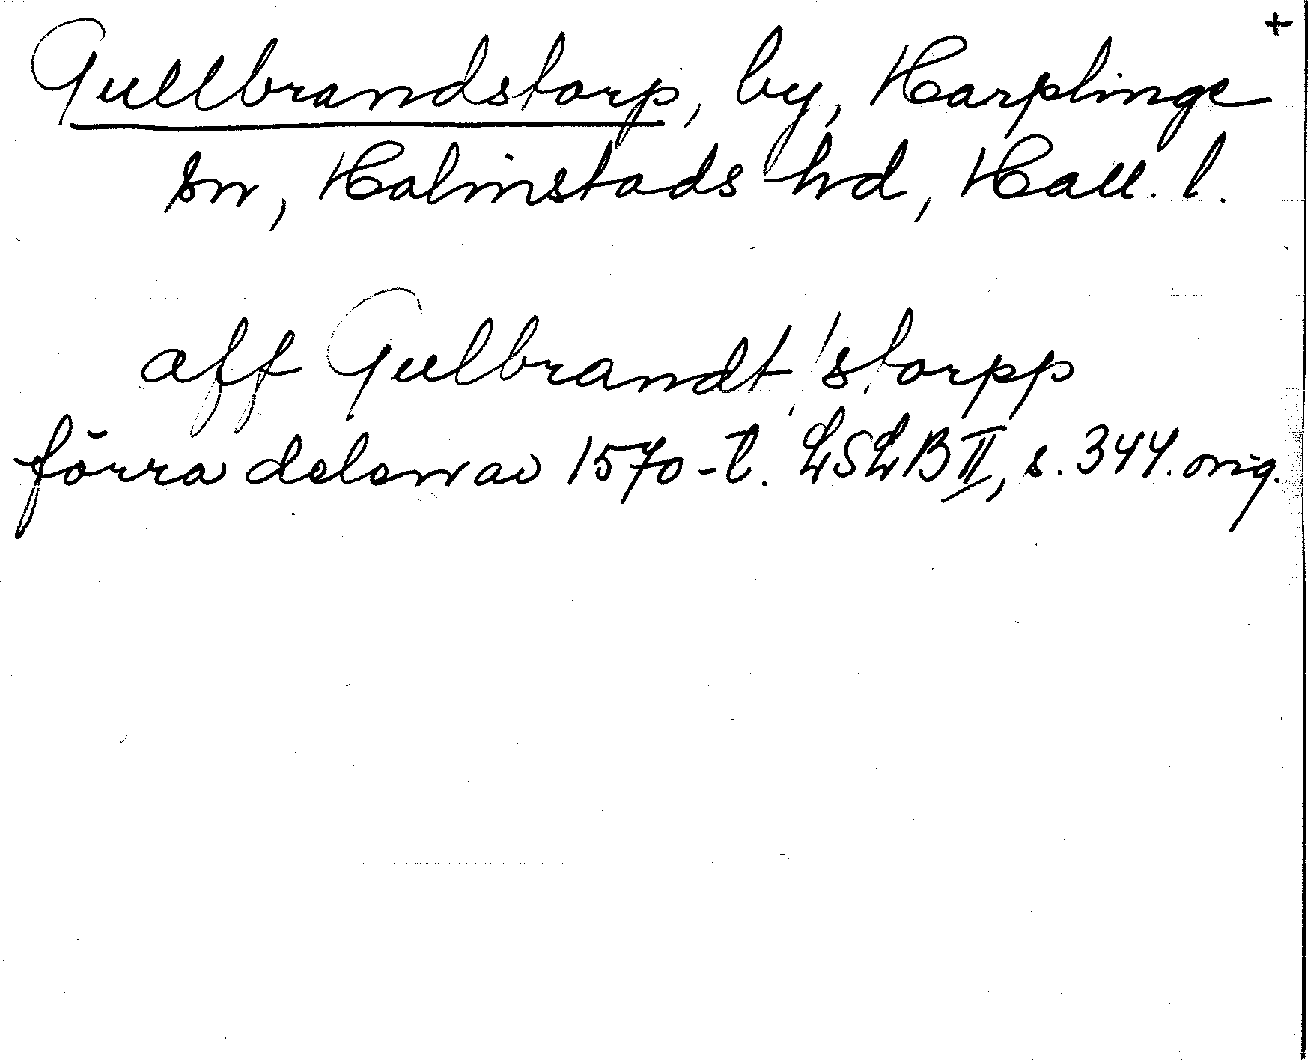 +
Gullbrandstorp, by, Harplinge
sn, Halmstads hd, Hall. l.
aff Gulbrandt/storpp
förra delen av 1570-t. LSLB II, s. 344. orig.